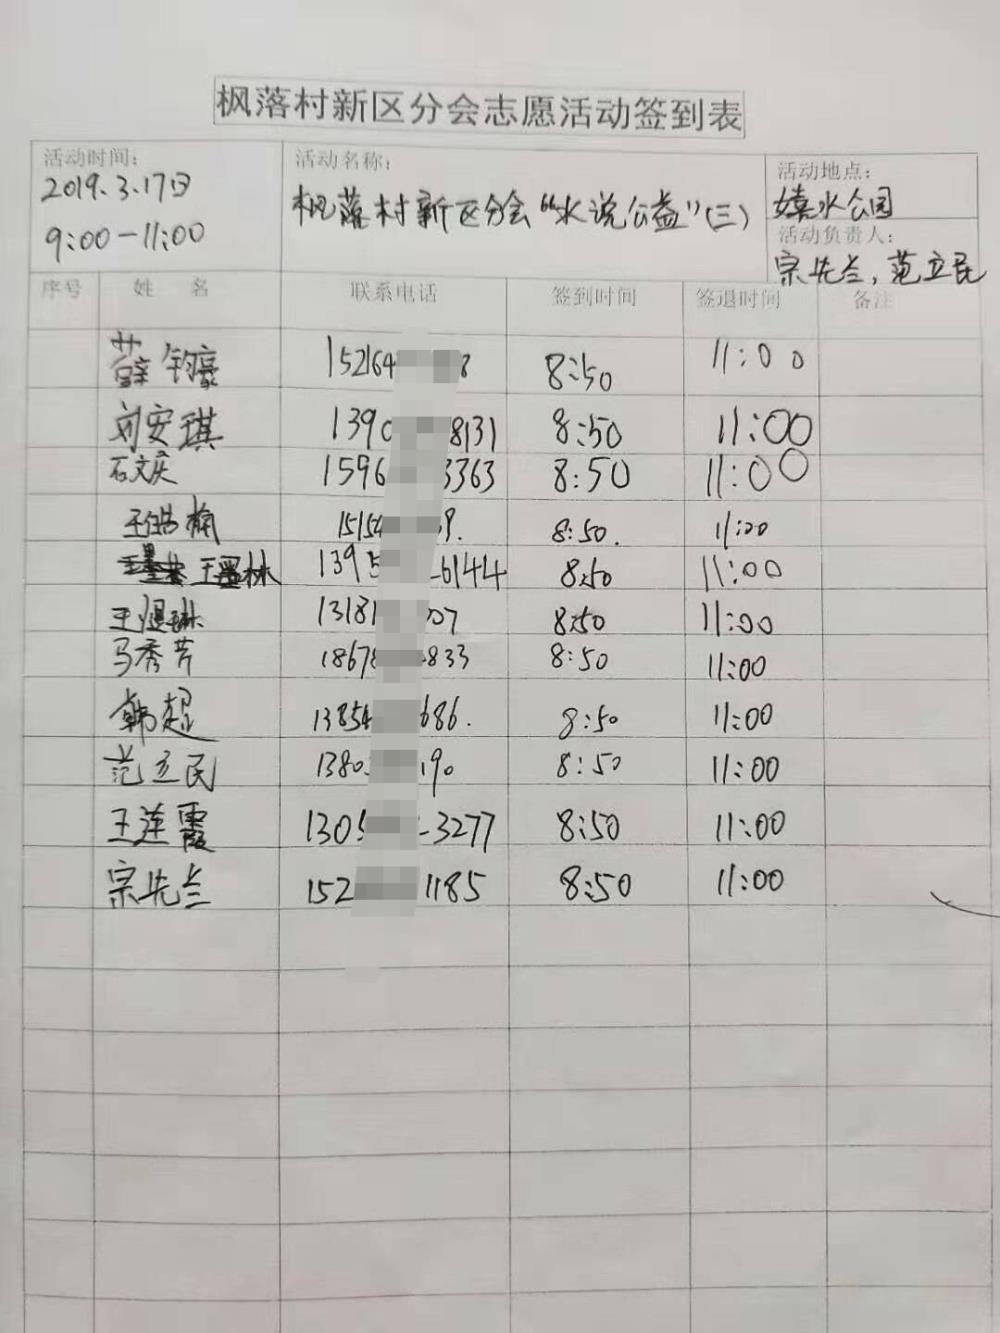 枫落村新区分会志愿活动签到表
活动时间:
2019.3.17日
9:00-11:00
活动名称:
枫落村新区分会“水说公益”(三)
活动地点:
嬉水公园
活动负责人:
宗先兰,范立民
序号 姓 名 联系电话 签到时间 签退时间 备注
薛钧豪 152164 8 8:50 11:00
刘安琪 1390 8131 8:50 11:00
石文 1596 3363 8:50 11:00
王 楠 15154 9. 8:50. 11:00
王墨林 1395 -6144 8:50 11:00
王煜琳 13181 07 8:50 11:00
马秀芳 18678 833 8:50 11:00
韩超 13854 686. 8:50 11:00
范立民 1380 190 8:50 11:00
王莲霞 1305 -3277 8:50 11:00
宗先兰 152 1185 8:50 11:00